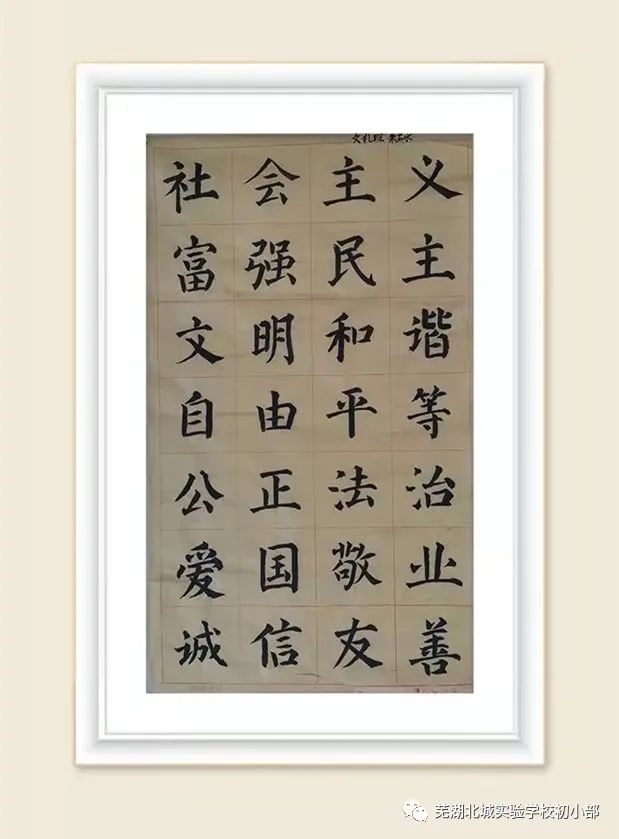 社会主义
富强民主
文明和谐
自由平等
公正法治
爱国敬业
诚信友善
芜湖北城实验学校初小部